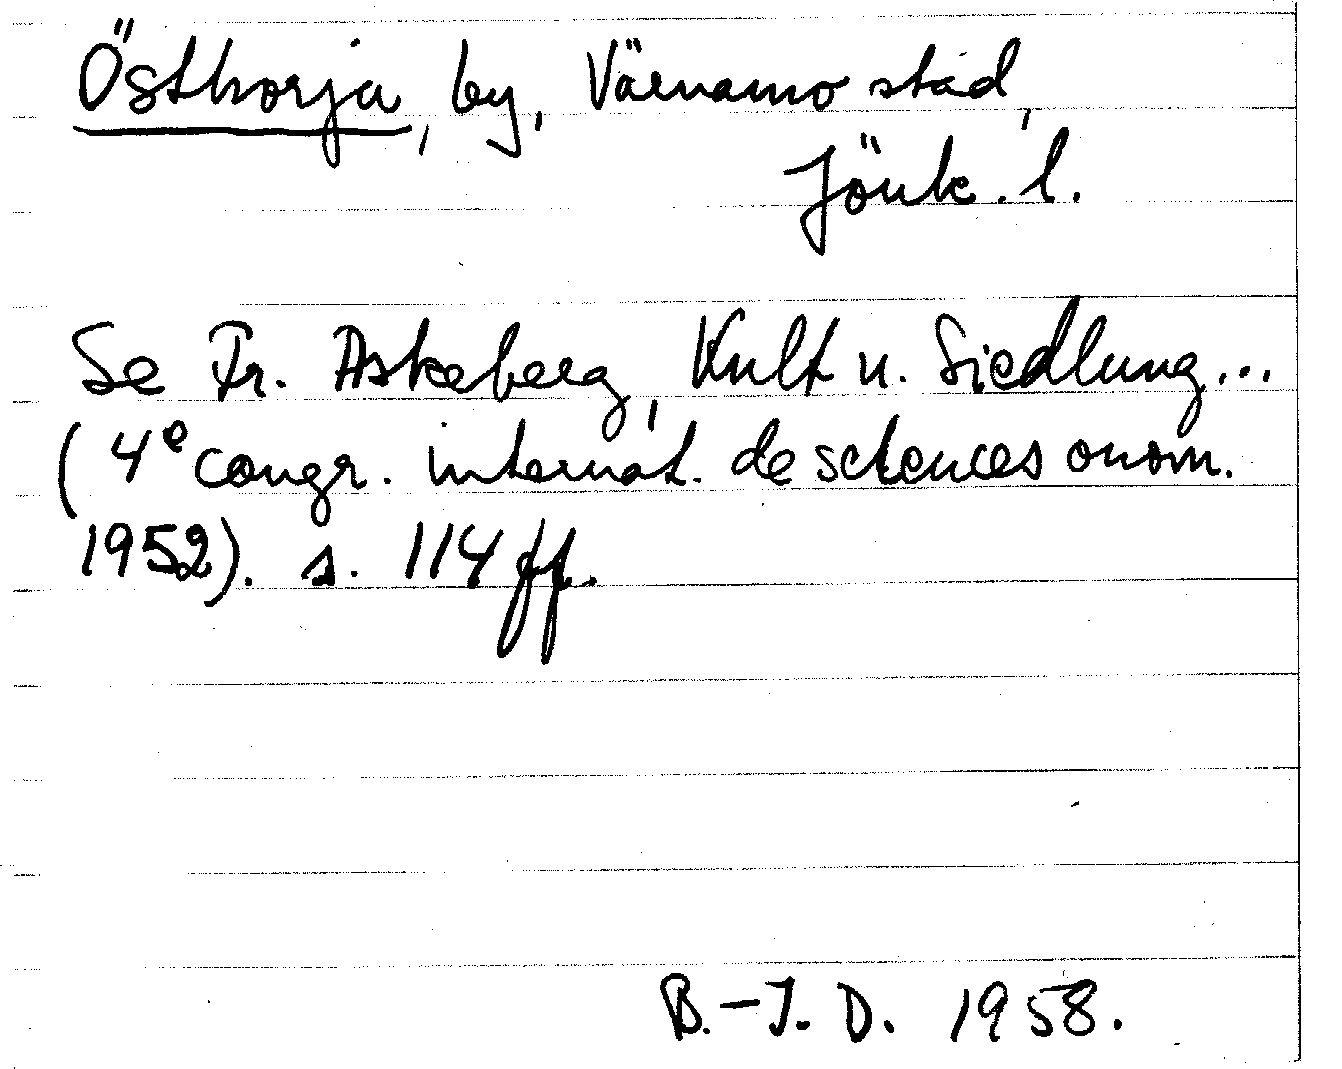 Östhorja, by, Värnamo stad,
Jönk. l.
Se Fr. Askeberg, Kult u. Siedlung...
(4e congr. internat. de sciences onom.
1952). s. 114 ff.
B.-I. D. 1958.